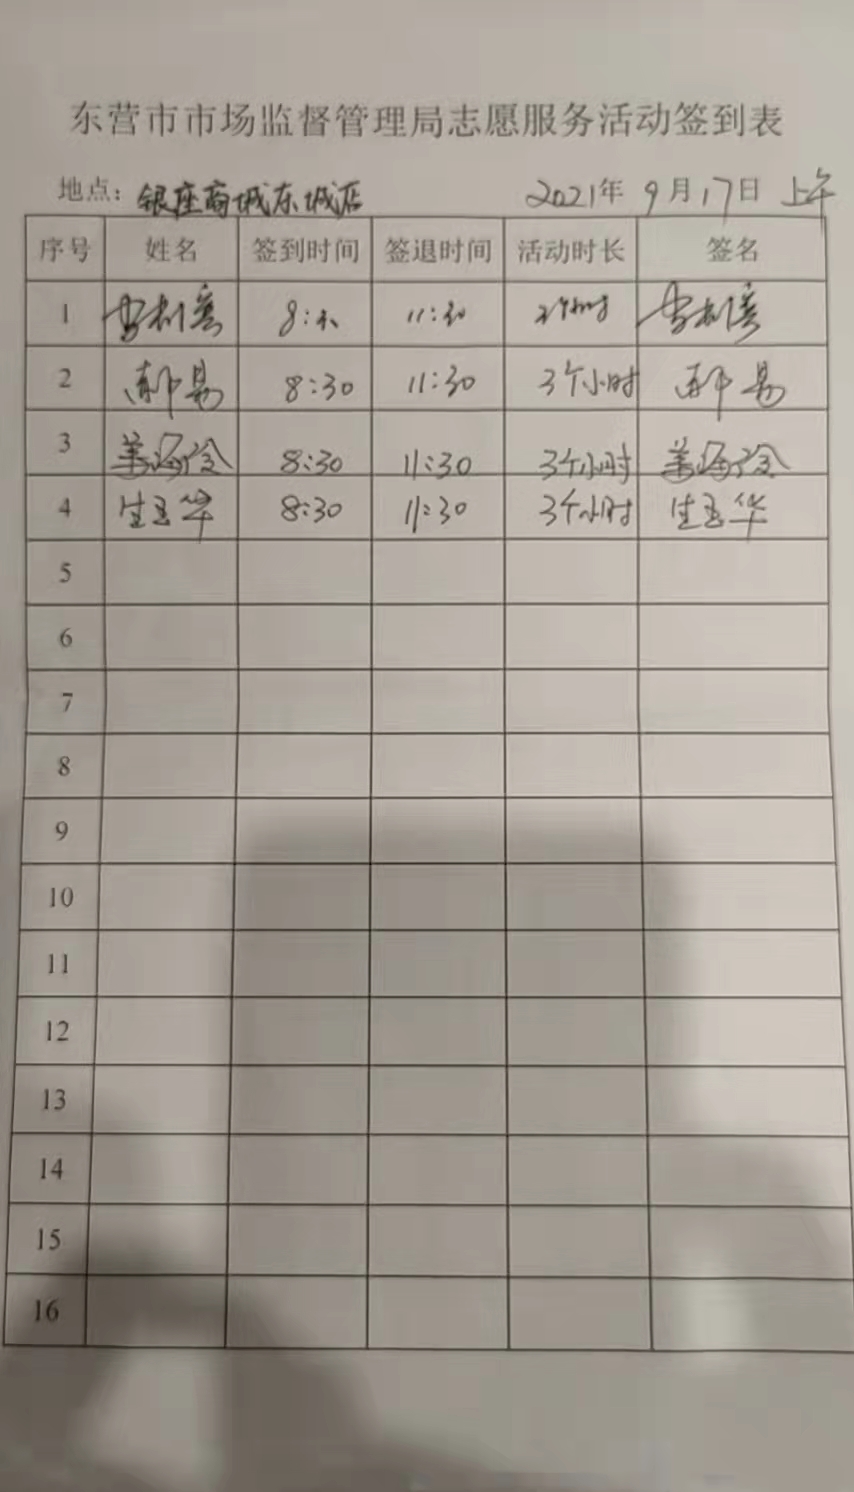 东营市市场监督管理局志愿服务活动签到表
地点：银座商城东城店 2021年 9月17日 上午
序号 姓名 签到时间 签退时间 活动时长 签名
1 11:30
2 8:30 11:30 3个小时
3 8:30 11:30 3个小时
4 生玉华 8:30 11:30 3个小时 生玉华
5
6
7
8
9
10
11
12
13
14
15
16